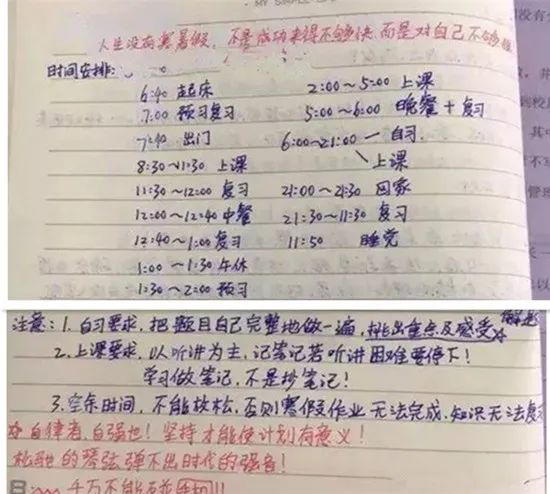 MY SIMPLE
人生没有寒暑假,不是成功来得不够快,而是对自己不够狠
时间安排:
6:40 起床
7:00 预习复习
7:40 出门
8:30~11:30 上课
11:30~12:00 复习
12:00~12:40 中餐
12:40~1:00 复习
1:00~1:30 午休
1:30~2:00 预习
2:00~5:00 上课
5:00~6:00 晚餐+复习
6:00~21:00 一自习.
上课
21:00~21:30 回家
21:30~11:30 复习
11:50 睡觉
注意:1.自习要求,把题目自己完整地做一遍,挑出重点及感受
2.上课要求,以听讲为主,记笔记若听讲困难要停下!
学习做笔记,不是抄笔记!
3.空余时间,不能放松,否则寒假作业无法完成,知识无法复习
自律者,自强也!坚持才能使计划有意义!
松驰的琴弦弹不出时代的强音!
千万不能玩手机!!